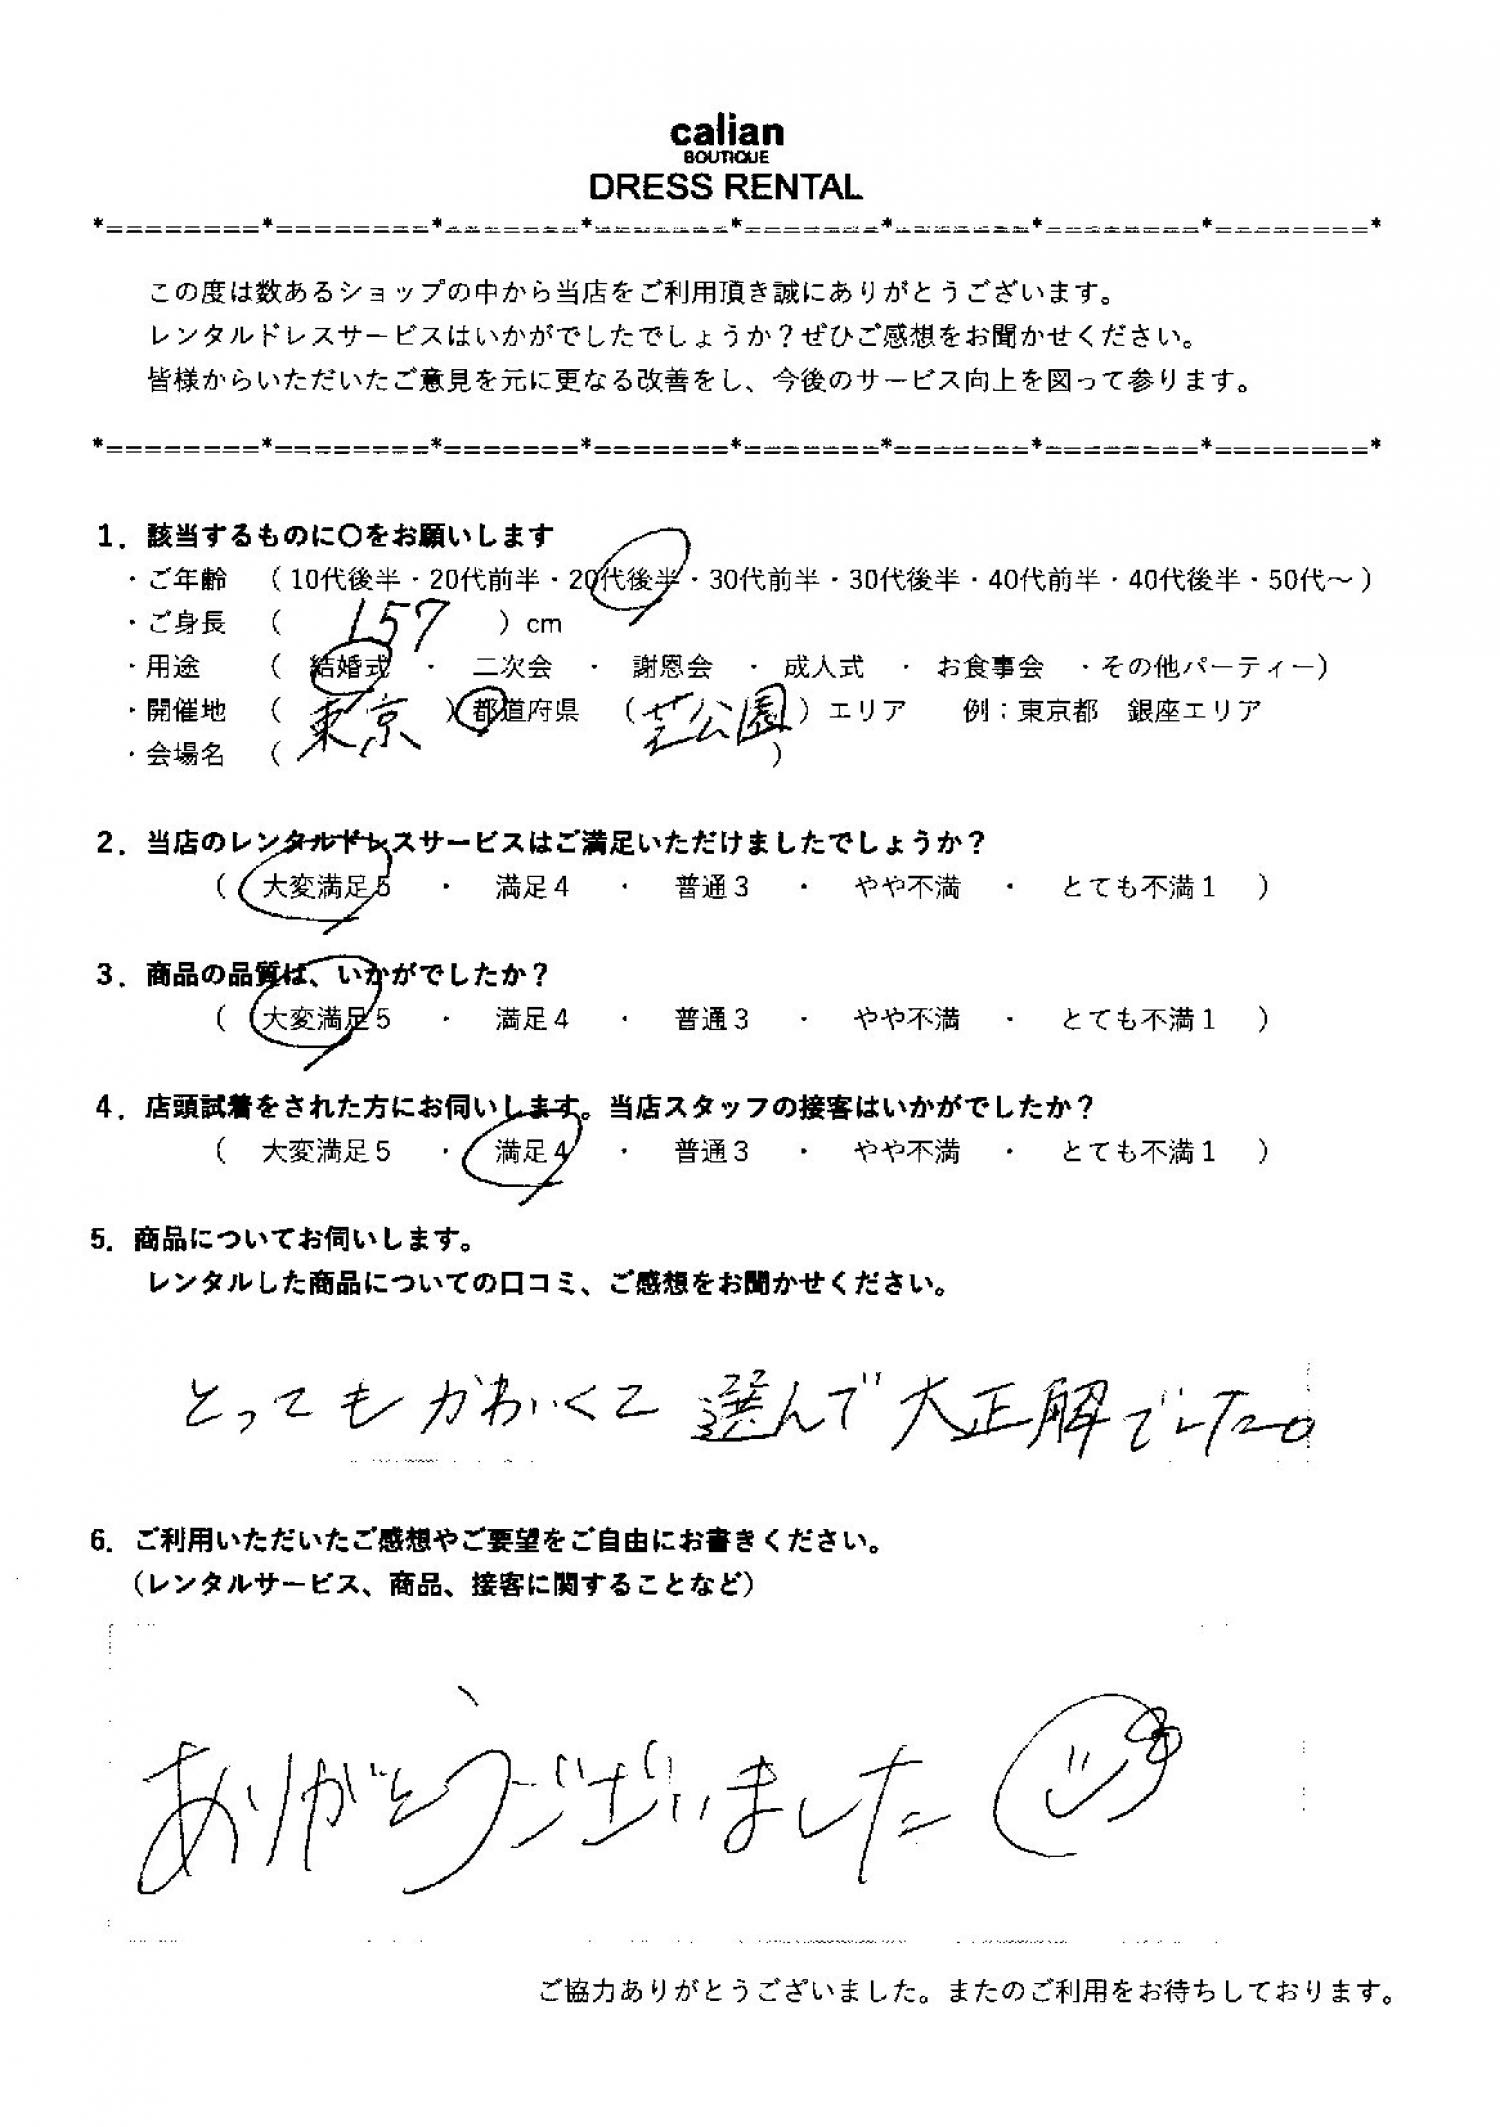 calian
BOUTIQUE
DRESS RENTAL
*========*========*=======*=======*=======*=======*========*========*
この度は数あるショップの中から当店をご利用頂き誠にありがとうございます。
レンタルドレスサービスはいかがでしたでしょうか？ぜひご感想をお聞かせください。
皆様からいただいたご意見を元に更なる改善をし、今後のサービス向上を図って参ります。
*========*========*=======*=======*=======*=======*========*========*
1．該当するものに〇をお願いします
・ご年齢 （10代後半・20代前半・20代後半・30代前半・30代後半・40代前半・40代後半・50代～）
・ご身長 （ 157 ）cm
・用途 （ 結婚式 ・ 二次会 ・ 謝恩会 ・ 成人式 ・ お食事会 ・その他パーティー）
・開催地 （ 東京 ）都道府県 （芝公園）エリア 例：東京都 銀座エリア
・会場名 （ ）
2．当店のレンタルドレスサービスはご満足いただけましたでしょうか？
（ 大変満足5 ・ 満足4 ・ 普通3 ・ やや不満 ・ とても不満1 ）
3．商品の品質は、いかがでしたか？
（ 大変満足5 ・ 満足4 ・ 普通3 ・ やや不満 ・ とても不満1 ）
4．店頭試着をされた方にお伺いします。当店スタッフの接客はいかがでしたか？
（ 大変満足5 ・ 満足4 ・ 普通3 ・ やや不満 ・ とても不満1 ）
5．商品についてお伺いします。
レンタルした商品についての口コミ、ご感想をお聞かせください。
とってもかわいくて選んで大正解でした。
6．ご利用いただいたご感想やご要望をご自由にお書きください。
（レンタルサービス、商品、接客に関することなど）
ありがとうございました
ご協力ありがとうございました。またのご利用をお待ちしております。